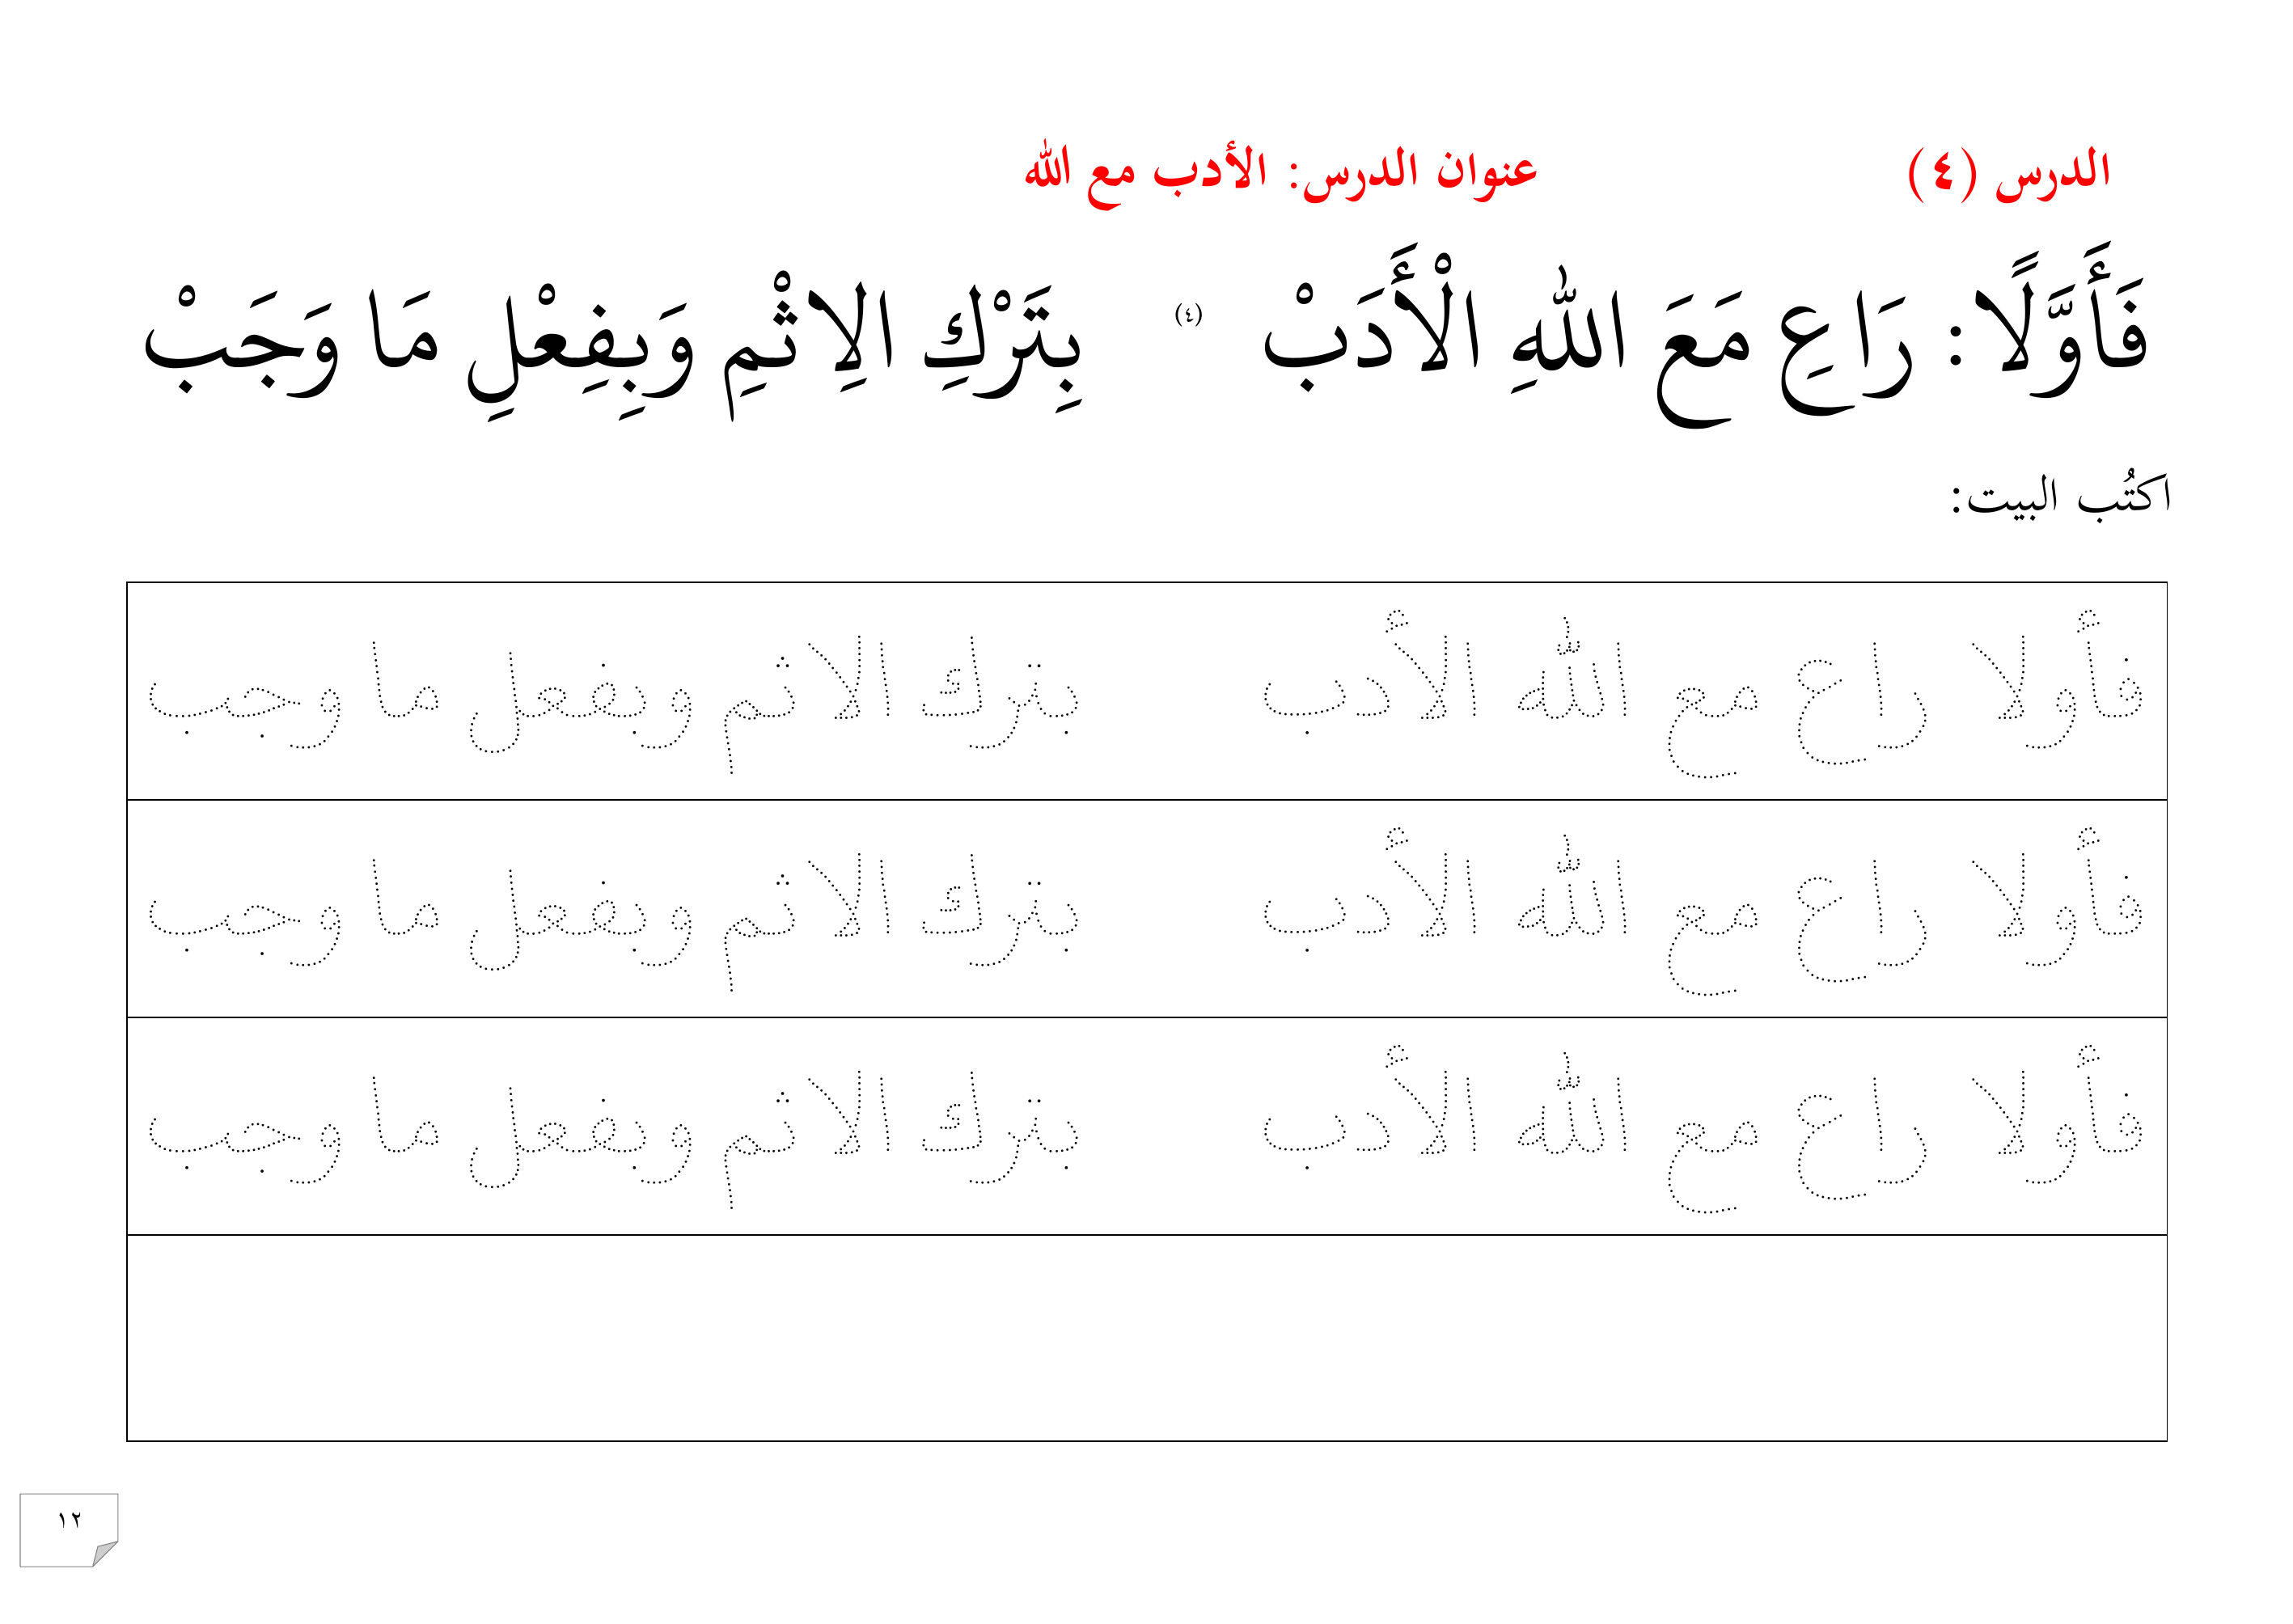 الدرس (٤) عنوان الدرس: الأدب مع الله
فَأَوَّلًا: رَاعِ مَعَ اللهِ الْأَدَبْ (٤) بِتَرْكِ الِاثْمِ وَبِفِعْلِ مَا وَجَبْ
اكتُب البيت:
فأولا راع مع الله الأدب بترك الاثم وبفعل ما وجب
فأولا راع مع الله الأدب بترك الاثم وبفعل ما وجب
فأولا راع مع الله الأدب بترك الاثم وبفعل ما وجب
١٢